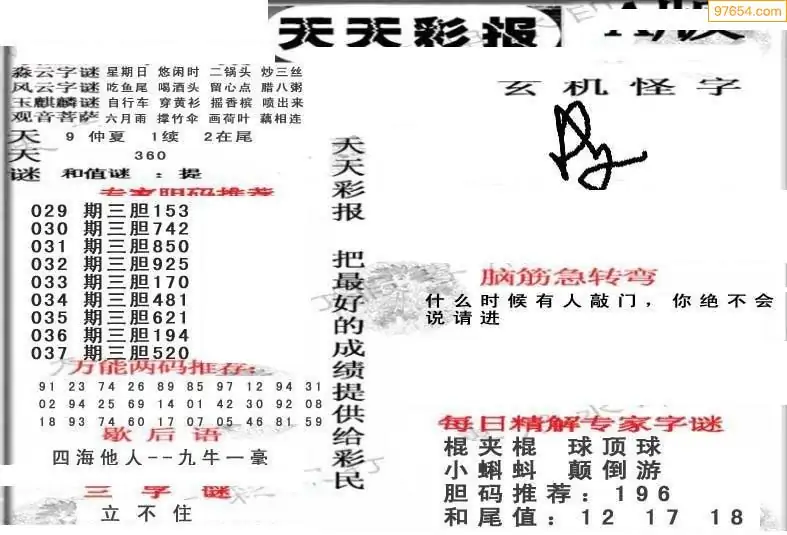 97654.com
天天彩报
A版
森云字谜 星期日 悠闲时 二锅头 炒三丝
风云字谜 吃鱼尾 喝酒头 留心点 腊八粥
玉麒麟谜 自行车 穿黄衫 摇香槟 喷出来
观音菩萨 六月雨 撑竹伞 画荷叶 藕相连
天 9 仲夏 1续 2在尾
天 360
谜 和值谜 : 提
专家胆码推荐
029 期三胆153
030 期三胆742
031 期三胆850
032 期三胆925
033 期三胆170
034 期三胆481
035 期三胆621
036 期三胆194
037 期三胆520
万能两码推荐:
91 23 74 26 89 85 97 12 94 31
02 94 25 69 14 01 42 30 92 08
18 93 74 60 17 07 05 46 81 59
歇后语
四海他人--九牛一毫
三字谜
立不住
天天彩报 把最好的成绩提供给彩民
玄机怪字
脑筋急转弯
什么时候有人敲门，你绝不会
说请进
每日精解专家字谜
棍夹棍 球顶球
小蝌蚪 颠倒游
胆码推荐：196
和尾值：12 17 18